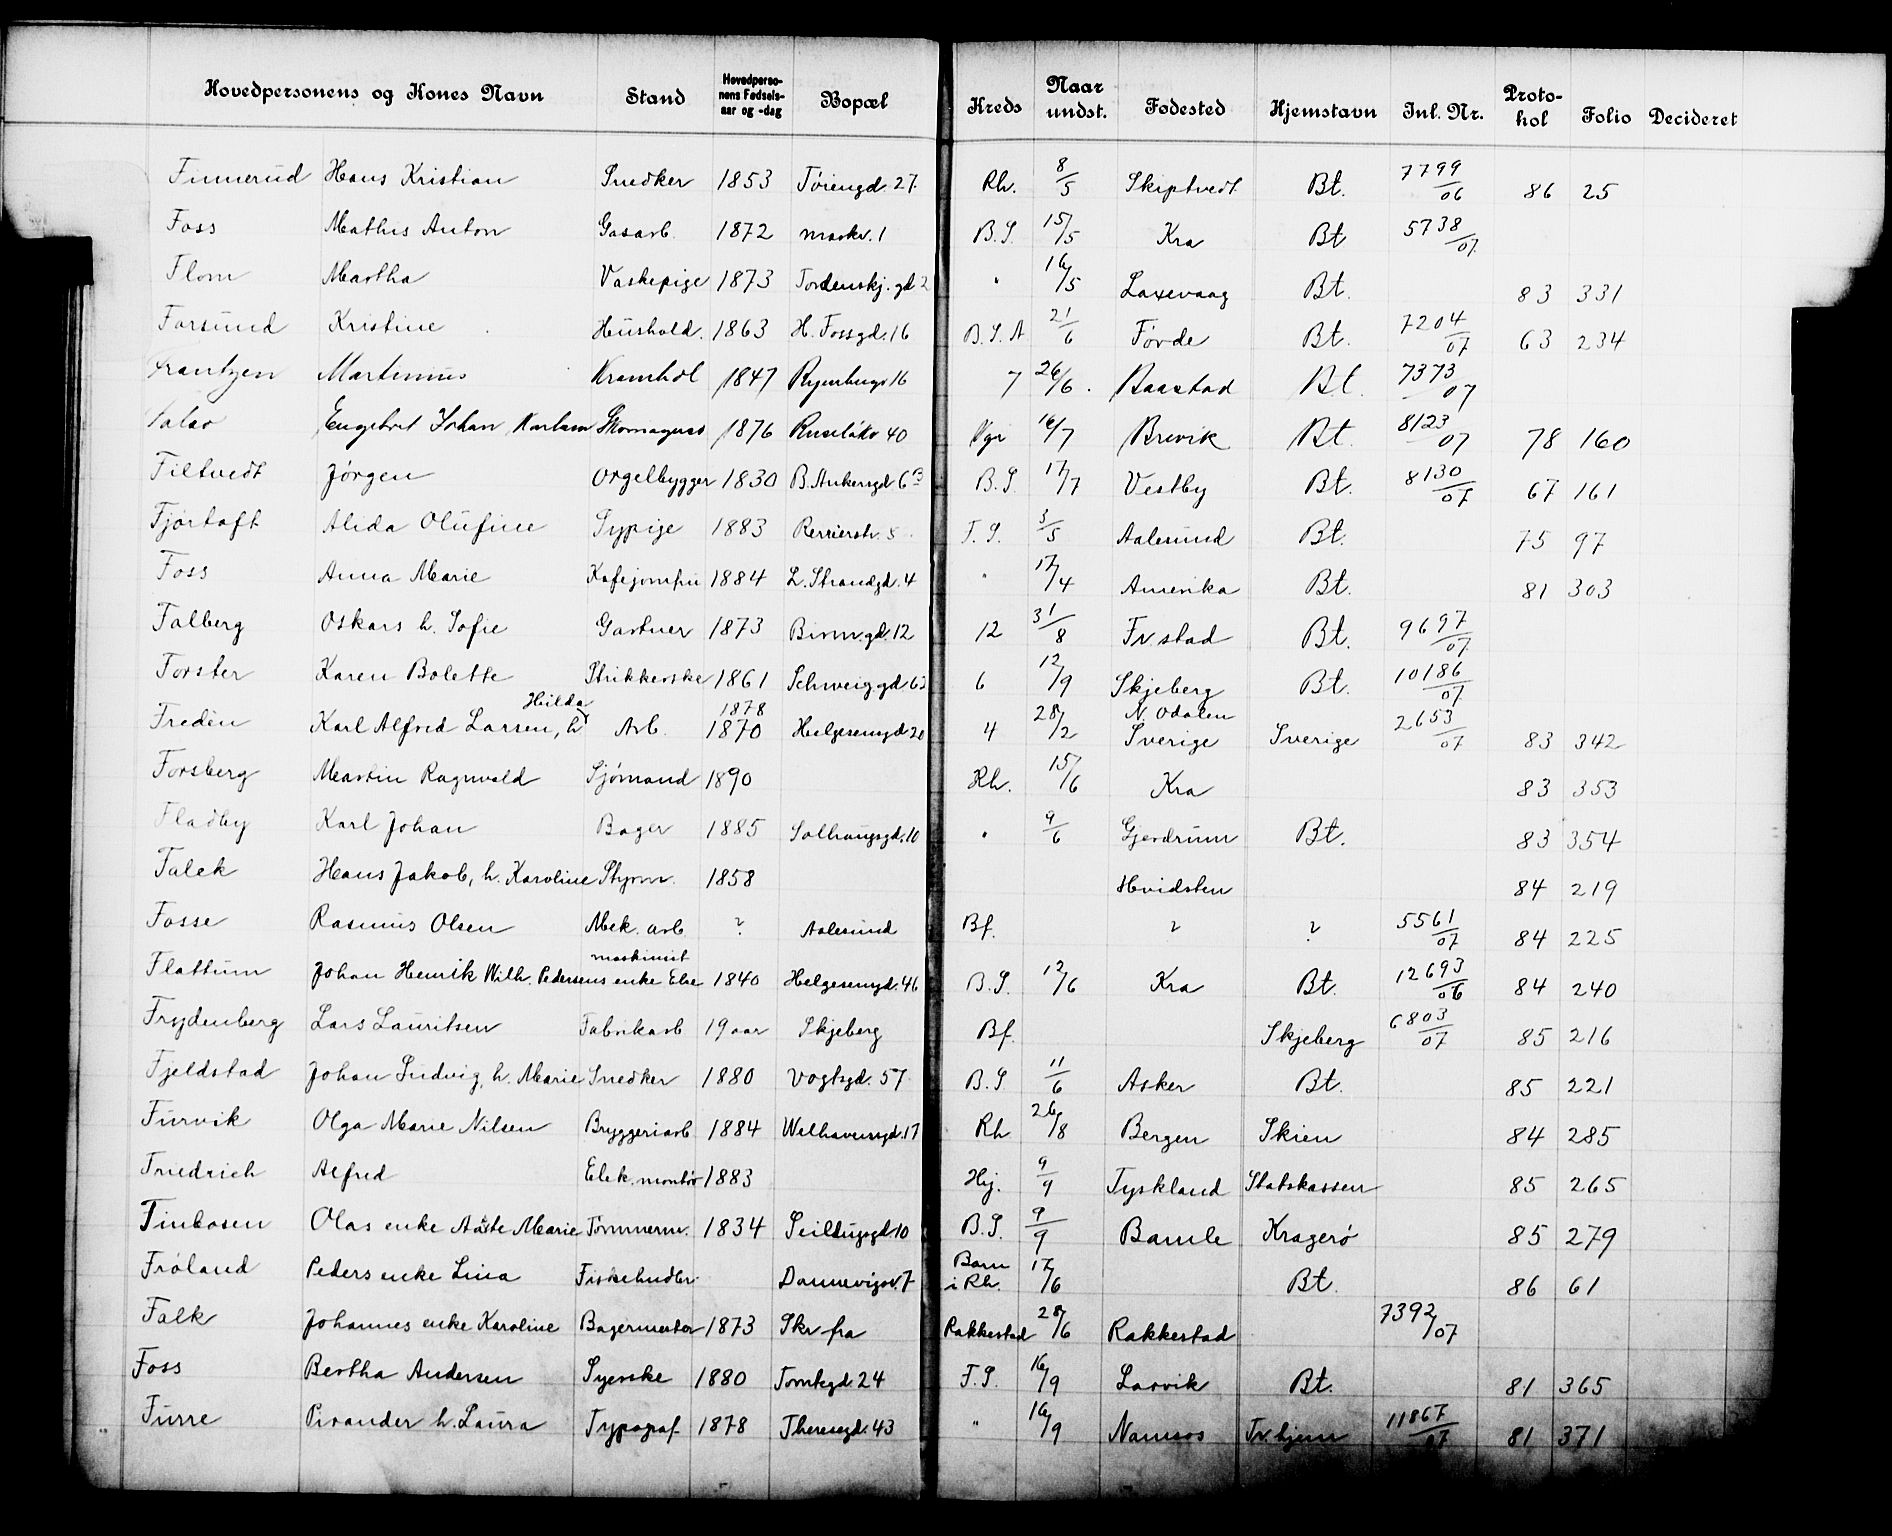 Hovedpersonens og Kones Navn | Stand | Hovedperso-nens Fødsels-aar og -dag | Bopæl | Kreds | Naar undst. | Fødested | Hjemstavn | Inl. Nr. | Proto-kol | Folio | Decideret
Finnerud Hans Kristian Snedker 1853 Tøiengd. 27 Rh. 8/5 Skiptvedt Bt. 7799/06 86 25
Foss Mathis Anton Gasarb. 1872 markv. 1 B.S. 15/5 Kra Bt 5738/07
Flom Martha Vaskepige 1873 Tordenskj. gd 2 " 16/5 Laxevaag Bt. 83 331
Forsund Kristine Hushold. 1863 H. Fossgd. 16 B.S.A 21/6 Førde Bt. 7204/07 63 234
Frantzen Martinius 1847 16 7 26/6 Baastad Bt. 7373/07
Engebret Johan Karlsen Skomagers 1876 Ruseløkv 40 Vgr 16/7 Brevik Bt. 8123/07 78 160
Filtvedt Jørgen Orgelbygger 1830 B. Ankersgd 6B B.S. 17/7 Vestby Bt. 8130/07 67 161
Fjørtoft Alida Olufine Sypige 1883 5 F.S. 3/5 Aalesund Bt. 75 97
Foss Anna Marie Kafejomfru 1884 L. Strandgd. 4 " 17/4 Amerika Bt. 81 303
Falberg Oskars h. Sofie Gartner 1873 Birm.gd. 12 12 31/8 Fr.stad Bt. 9697/07
Forster Karen Bolette Strikkerske 1861 Schweiggd. 63 6 12/9 Skjeberg Bt. 10186/07
Hilda 1878 N. Odalen
Fredèn Karl Alfred Larsen, h Arb. 1870 Helgesensgd 20 4 28/2 Sverige Sverige 2653/07 83 342
Forsberg Martin Ragnvald Sjømand 1890 Rh. 15/6 Kra 83 353
Fladby Karl Johan Bager 1885 Solhaugsgd. 10 " 9/6 Gjerdrum Bt. 83 354
Falck Hans Jakob, h. Karoline Styrm. 1858 Hvidsten 84 219
Fosse Rasmus Olsen Mek. arb ? Aalesund Bf. ? ? 5561/07 84 225
maskinist
Flattum Johan Henrik Wilh. Pedersens enke Else 1840 Helgesensgd. 46 B.S. 12/6 Kra Bt. 12693/06 84 240
Frydenberg Lars Lauritsen Fabrikarb 19 aar Skjeberg Bf. Skjeberg 6803/07 85 216
Fjeldstad Johan Ludvig, h. Marie Snedker 1880 Vogtsgd. 57 B.S. 11/6 Asker Bt. 85 221
Furvik Olga Marie Nilsen Bryggeriarb 1884 Welhavensgd. 17 Rh 26/8 Bergen Skien 84 285
Friedrich Alfred Elek. montør 1883 Hj. 9/9 Tyskland Statskassen 85 265
Finbosen Olas enke Aaste Marie Tømmerm. 1834 Seildugsgd. 10 B.S. 9/9 Bamle Kragerø 85 279
Frøland Peders enke Lina Fiskehndlr. Dannevigsv. 7 Barn i Rh. 17/6 Bt. 86 61
Falk Johannes enke Karoline Bagermester 1873 Skr fra Rakkestad 28/6 Rakkestad 7392/07
Foss Bertha Andersen Syerske 1880 Tomtegd. 24 F.S. 16/9 Larvik Bt. 81 365
Furre Pirander h. Laura Typograf 1878 Theresegd. 43 " 16/9 Namsos Tr.hjem 11867/07 81 371